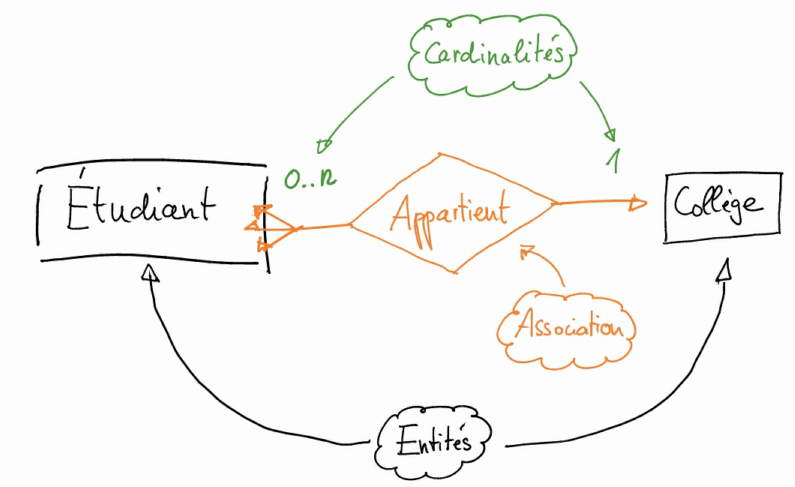 Cardinalités
0..n
1
Étudiant
Appartient
Collège
Association
Entités